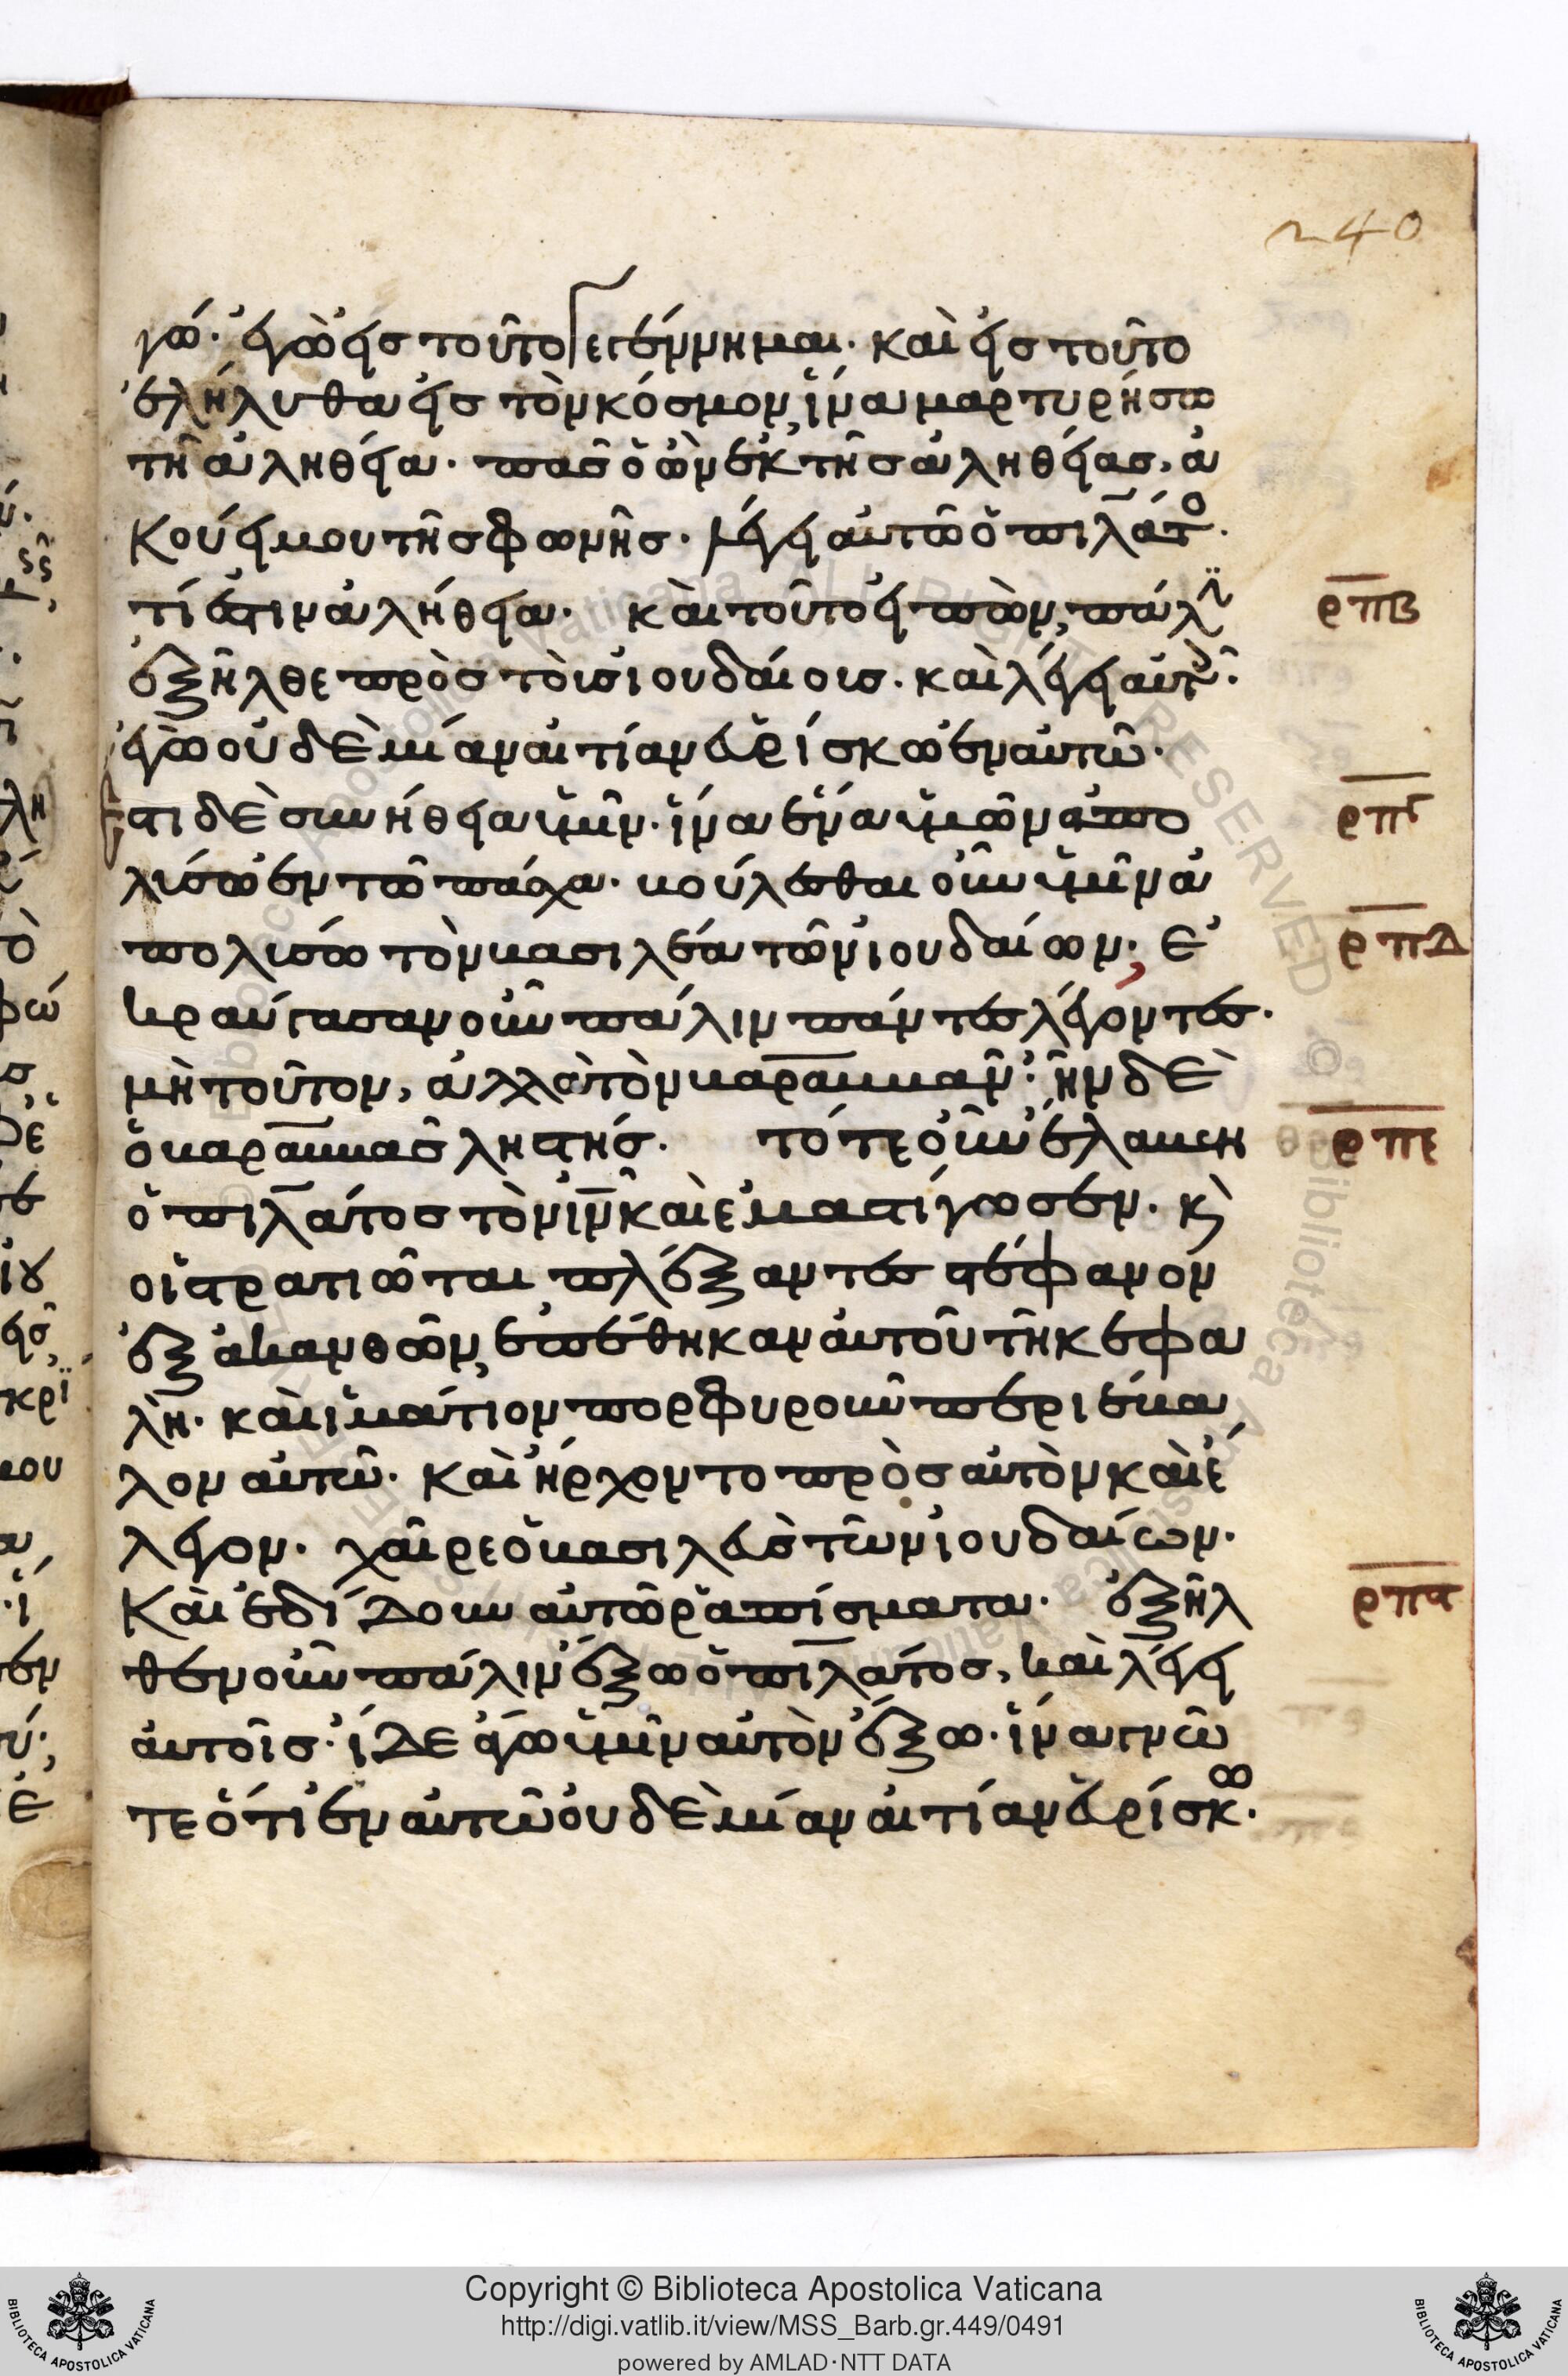 240
γώ· ἐγὼ εἰς τοῦτο γεγέννημαι· καὶ εἰς τοῦτο
ἐλήλυθα εἰς τὸν κόσμον, ἵνα μαρτυρήσω
τῆ ἀληθεία· πᾶς ὁ ὢν ἐκ τῆς ἀληθείας, ἀ
κούει μου τῆς φωνῆς· λέγει αὐτῶ ὁ πιλάτο·
τί ἐστιν ἀλήθεια· καὶ τοῦτο εἰπὼν, πάλι
ρπβ
ἐξῆλθε πρὸς τοὺς ἰουδαίους· καὶ λέγει αὐτοῖ·
ἐγὼ οὐδὲ μίαν αἰτίαν εὑρίσκω ἐν αὐτῶ·
ἔστι δὲ συνήθεια ὑμῖν· ἵνα ἕνα ὑμῶν ἀπο
ρπγ
λύσω ἐν τῶ πάσχα· βούλεσθαι οὖν ὑμῖν ἀ
πολύσω τὸν βασιλέα τῶν ἰουδαίων; ἐ
ρπδ
κραύγασαν οὖν πάλιν πάντες λέγοντες·
μὴ τοῦτον, ἀλλὰ τὸν βαραββᾶν· ἦν δὲ
ὁ βαραββᾶς ληστής· τότε οὖν ἔλαβεν
ρπε
ὁ πιλάτος τὸν ιν καὶ ἐμαστίγωσεν. κὶ
οἱ στρατιῶται πλέξαντες στέφανον
ἐξ ἀκανθῶν, ἐπέθηκαν αὐτοῦ τῆ κεφα
λῆ· καὶ ἱμάτιον πορφυροῦν περιέβα
λον αὐτῶ· καὶ ἤρχοντο πρὸς αὐτὸν καὶ ἔ
λεγον· χαῖρε ὁ βασιλεὺς τῶν ἰουδαίων·
καὶ ἐδίδουν αὐτῶ ῥαπίσματα· ἐξῆλ
ρπϛ
θεν οὖν πάλιν ἔξω ὁ πιλάτος, καὶ λέγει
αὐτοῖς· ἴδε ἄγω ὑμῖν αὐτὸν ἔξω· ἵνα γνῶ
τε ὅτι ἐν αὐτῶ οὐδὲ μίαν αἰτίαν εὑρίσκω·
Copyright © Biblioteca Apostolica Vaticana
http://digi.vatlib.it/view/MSS_Barb.gr.449/0491
powered by AMLAD·NTT DATA
BIBLIOTECA APOSTOLICA VATICANA
BIBLIOTECA APOSTOLICA VATICANA